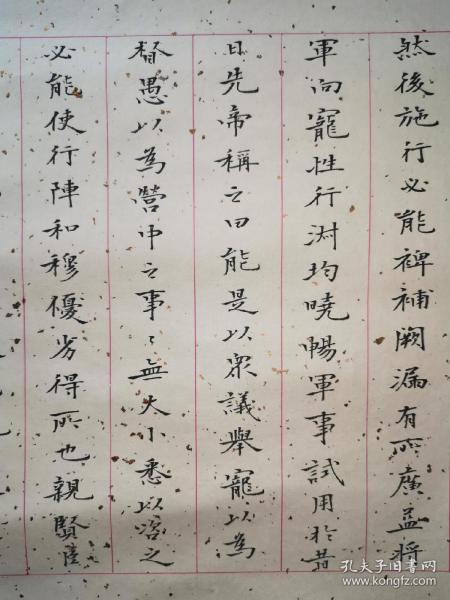 然後施行必能裨補闕漏有所廣益將
軍向寵性行淑均曉暢軍事試用於昔
日先帝稱之曰能是以衆議舉寵以為
督愚以為營中之事〻無大小悉以咨之
必能使行陣和穆優劣得所也親賢臣
孔夫子旧书网
www.kongfz.com